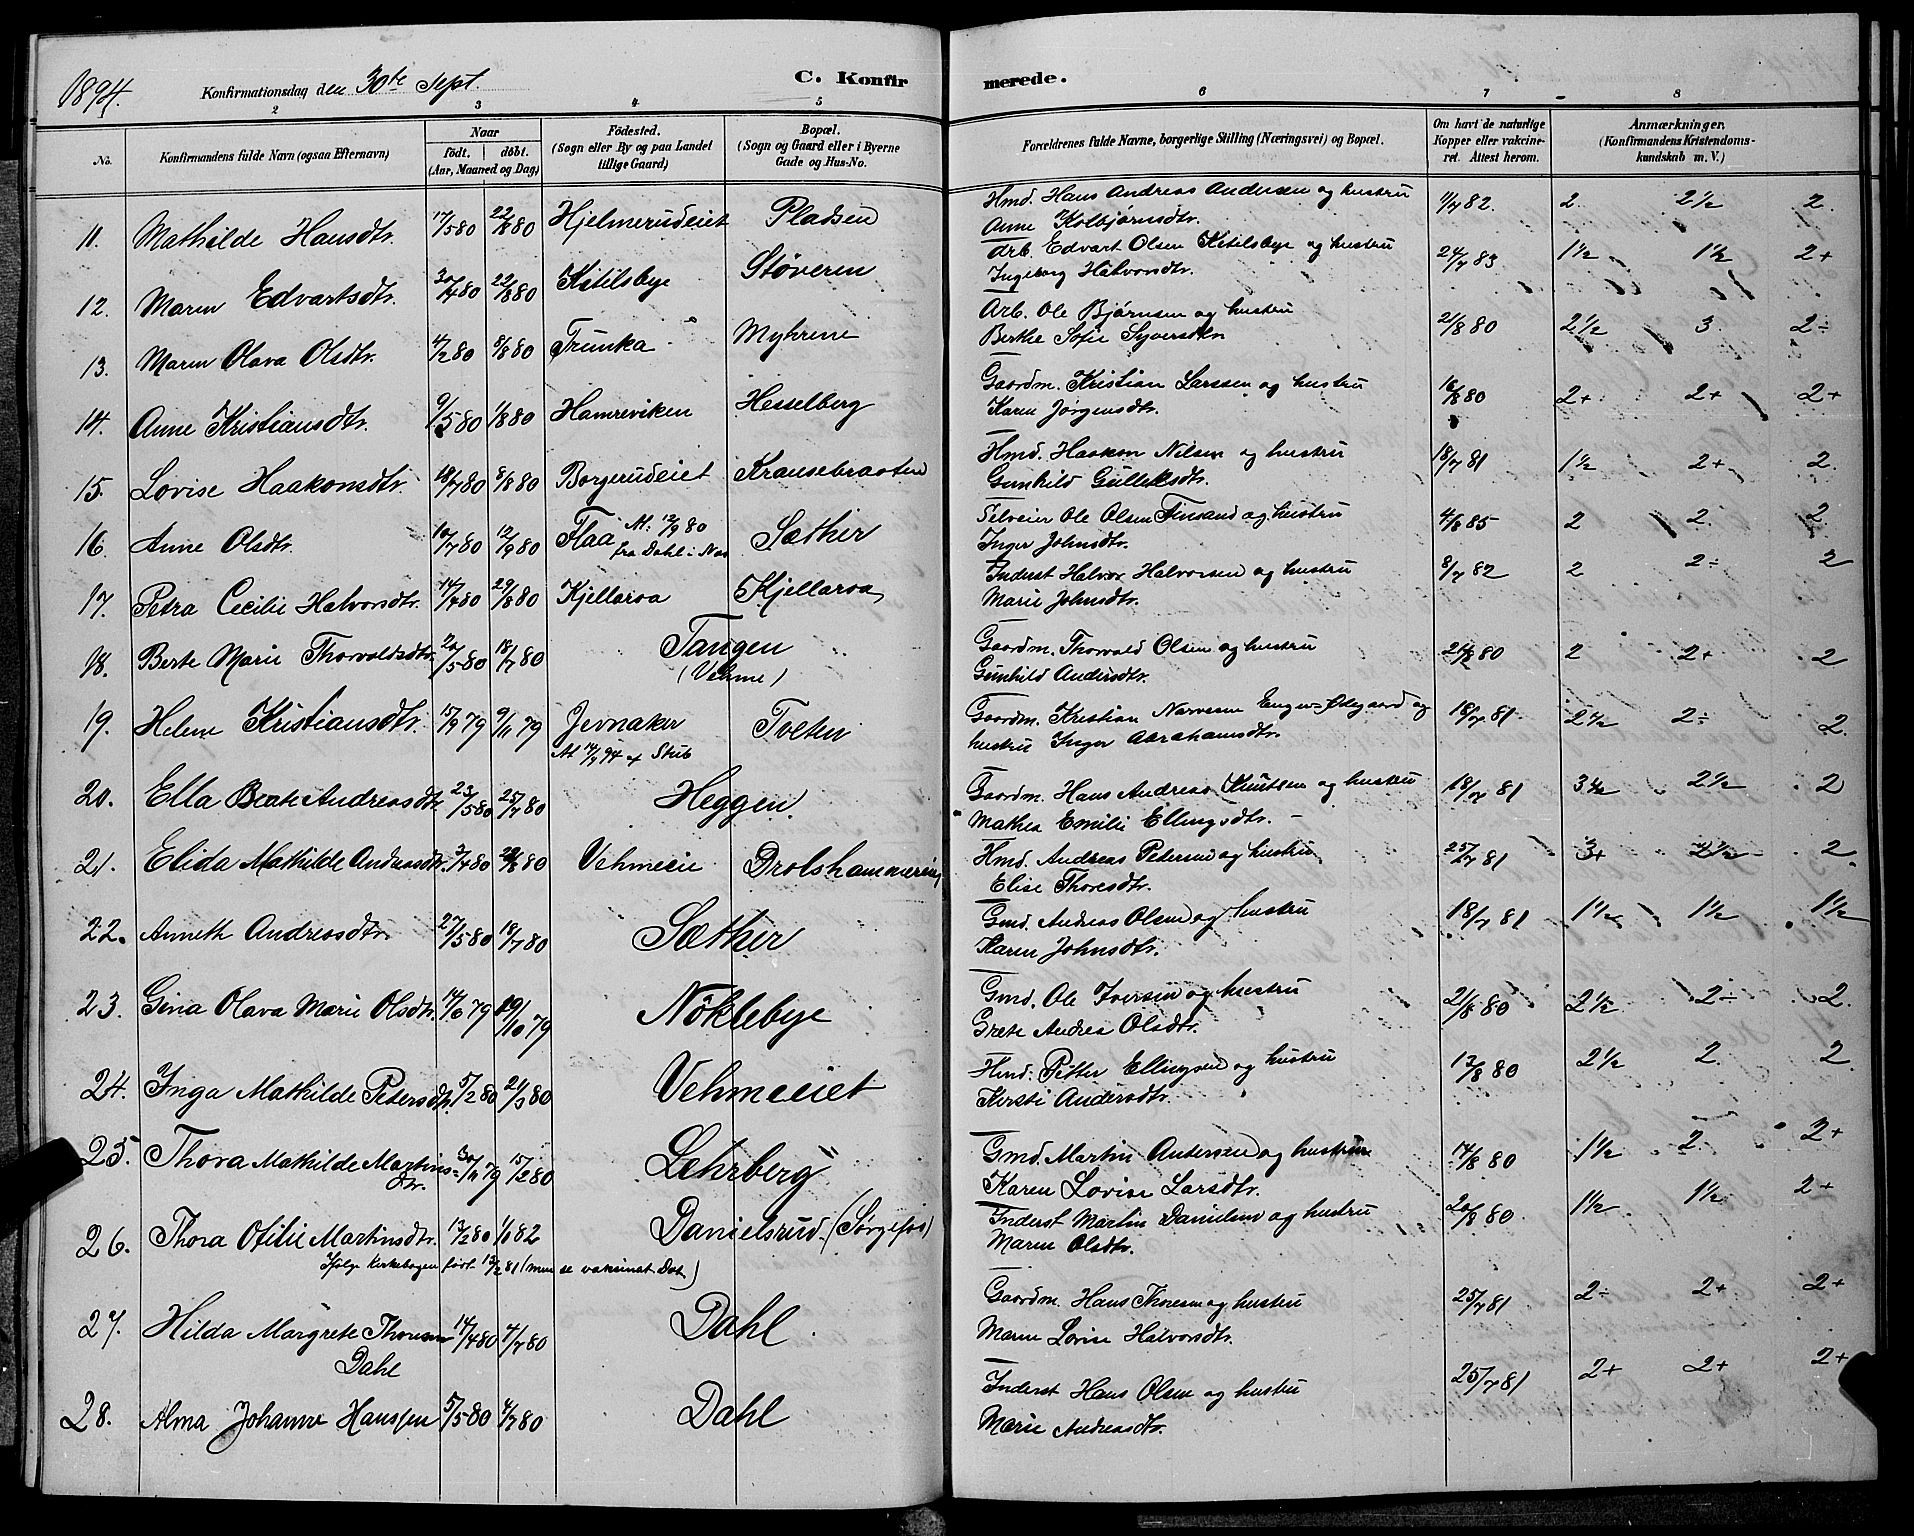 1894. Konfirmationsdag den 30te Sept. C. Konfirmerede.
2 3 4 5 6 7 8
No. Konfirmandens fulde Navn (ogsaa Efternavn) Naar födt. döbt. (Aar, Maaned og Dag) Födested. (Sogn eller By og paa Landet tillige Gaard) Bopæl. (Sogn og Gaard eller i Byerne Gade og Hus-No. Forældrenes fulde Navne, borgerlige Stilling (Næringsvei) og Bopæl. Om havt de naturlige Kopper eller vakcineret. Attest herom. Anmærkninger. (Konfirmandens Kristendomskundskab m. V.)
11. Mathilde Hansdtr. 17/5 80 22/8 80 Hjelmerudeiet Pladsen Hmd. Hans Andreas Andersen og hustru 11/7 82. 2. 2½ 2.
Anne Kolbjørnsdtr.
12. Maren Edvartsdtr. 30/4 80 22/8 80 Kitilsbye Støveren Arb. Edvart Olsen Kitilsbye og hustru 24/7 83 1½ 1½ 2+
Ingeborg Halvorsdtr.
13. Maren Olava Olsdtr. 4/2 80 8/8 80 Trunka Myhrene Arb. Ole Bjørnsen og hustru 21/8 80 2½ 3. 2÷
Berthe Sofie Syversdtr
14. Anne Kristiansdtr. 9/5 80 1/8 80 Hamreviken Hesselberg Gaardm. Kristian Larssen og hustru 16/8 80 2+ 2+ 2+
Karen Jørgensdtr.
15. Lovise Haakonsdtr. 18/7 80 8/8 80 Borgerudeiet Krausebraaten Hmd. Haakon Nilsen og hustru 18/7 81 1½ 2+ 2.
Gunhild Gulleksdtr.
16. Anne Olsdtr. 10/7 80 12/9 80 Flaa At. 12/9 80 Sæther Selveier Ole Olsen Finsand og hustru 4/8 85 2 2. 2.
fra Dahl i Næs Inger Johnsdtr.
17. Petra Cecilie Halvorsdtr. 14/4 80 29/8 80 Kjellaroa Kjellaroa Inderst Halvor Halvorsen og hustru 8/7 82 2 2÷ 2
Marie Johnsdtr.
18. Berte Marie Thorvaldsdtr. 20/5 80 18/7 80 Tangen Gaardm. Thorvald Olsen og hustru 21/8 80 2 2+ 2
(Vehme) Gunhild Andersdtr.
19. Helene Kristiansdtr. 15/9 79 9/11 79 Jevnaker Tveten Gaardm. Kristian Narvesen Enger-Ødegaard og 18/7 81 2½ 2÷ 2.
hustru Inger Abrahamsdtr.
20. Ella Beate Andreasdtr. 23/5 80 25/7 80 Heggen. Gaardm. Hans Andreas Knutsen og hustru 18/7 81 3½ 2½ 2
Mathea Emilie Ellingsdtr.
21. Elida Mathilde Andreasdtr. 3/4 80 80 Vehmeeie Drolshammeren Hmd. Andreas Petersen og hustru 25/7 81 3+ 2½ 2.
Elise Thoresdtr.
22. Anneth Andreasdtr. 27/5 80 18/7 80 Sæther Gmd. Andreas Olsen og hustru 18/7 81 1½ 1½ 1½
Karen Johnsdtr.
23. Gina Olava Marie Olsdtr. 79 79 Nöklebye Gmd. Ole Iversen og hustru 21/8 80 2½ 2÷ 2.
Grete Andrea Olsdtr.
24. Inga Mathilde Petersdtr. 5/2 80 21/3 80 Vehmeeiet Hmd. Petter Ellingsen og hustru 13/8 80 2½ 2. 2.
Kirsti Andersdtr.
25. Thora Mathilde Martins- 30/11 79 15/2 80 Lehrberg Gmd. Martin Andersen og hustru 14/8 80 1½ 2. 2+
dtr. Karen Lovise Larsdtr.
26. Thora Otilie Martinsdtr. 13/2 80 1/1 82 Danielsrud (Sørgefos) Inderst Martin Danielsen og hustru 20/8 80 1½ 1½ 2+
Ifølge Kirkebogen født 13/2 81 (men se vaksinat. Dat) Maren Olsdtr.
27. Hilda Margrete Thoresen 14/4 80 4/7 80 Dahl Gaardm. Hans Thoresen og hustru 25/7 81 2÷ 2+ 2+
Dahl Maren Lovise Halvorsdtr.
28. Alma Johanne Hanssen 5/5 80 4/7 80 Dahl Inderst Hans Olsen og hustru 25/7 81 2+ 2+ 2+
Marie Andreasdtr.